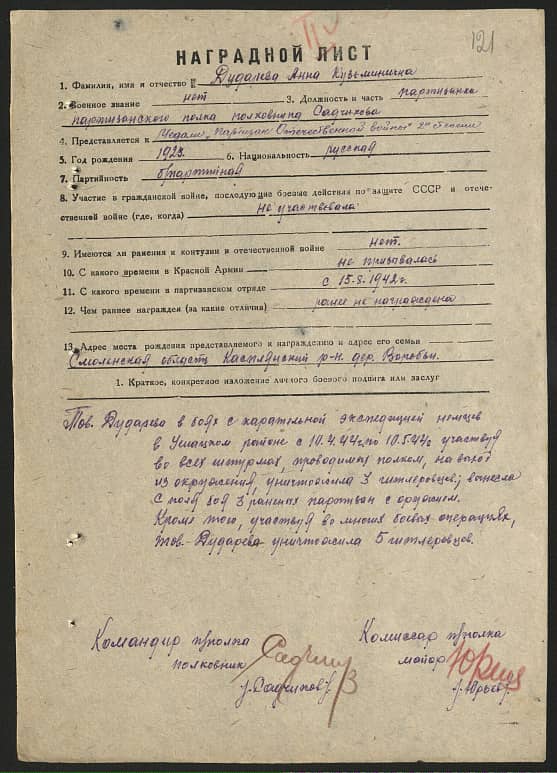 121
НАГРАДНОЙ ЛИСТ
1. Фамилия, имя и отчество Дударева Анна Кузьминична
2. Военное звание нет 3. Должность и часть партизанка
партизанского полка полковника Садчикова
4. Представляется к Медали "Партизан Отечественной войны" 2й степени
5. Год рождения 1923 6. Национальность русская
7. Партийность б/партийная
8. Участие в гражданской войне, последующие боевые действия по защите СССР и отече-
ственной войне (где, когда) не участвовала
9. Имеются ли ранения и контузии в отечественной войне нет.
10. С какого времени в Красной Армии не призывалась
11. С какого времени в партизанском отряде с 15.8.1942г.
12. Чем раннее награжден (за какие отличия) ранее не награждена
13. Адрес места рождения представляемого к награждению и адрес его семьи
Смоленская область Касплянский р-н дер. Воробьи.
1. Краткое, конкретное изложение личного боевого подвига или заслуг
Тов. Дударева в боях с карательной экспедицией немцев
в Ушацком районе с 10.4.44г. по 10.5.44г участвуя
во всех штурмах, проводимых полком, на выход
из окружения, уничтожила 3 гитлеровцев, вынесла
с поля боя 3 раненых партизан с оружием.
Кроме того, участвуя во многих боевых операциях,
тов. Дударева уничтожила 5 гитлеровцев.
Командир п/полка
полковник
/Садчиков/
Комиссар п/полка
майор
/Юрьев/